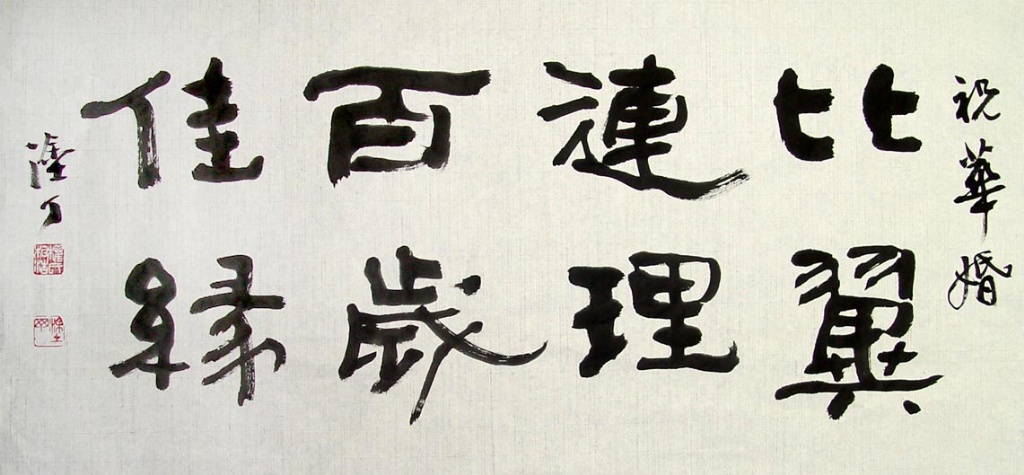 祝華婚
比翼
連理
百歲
佳緣